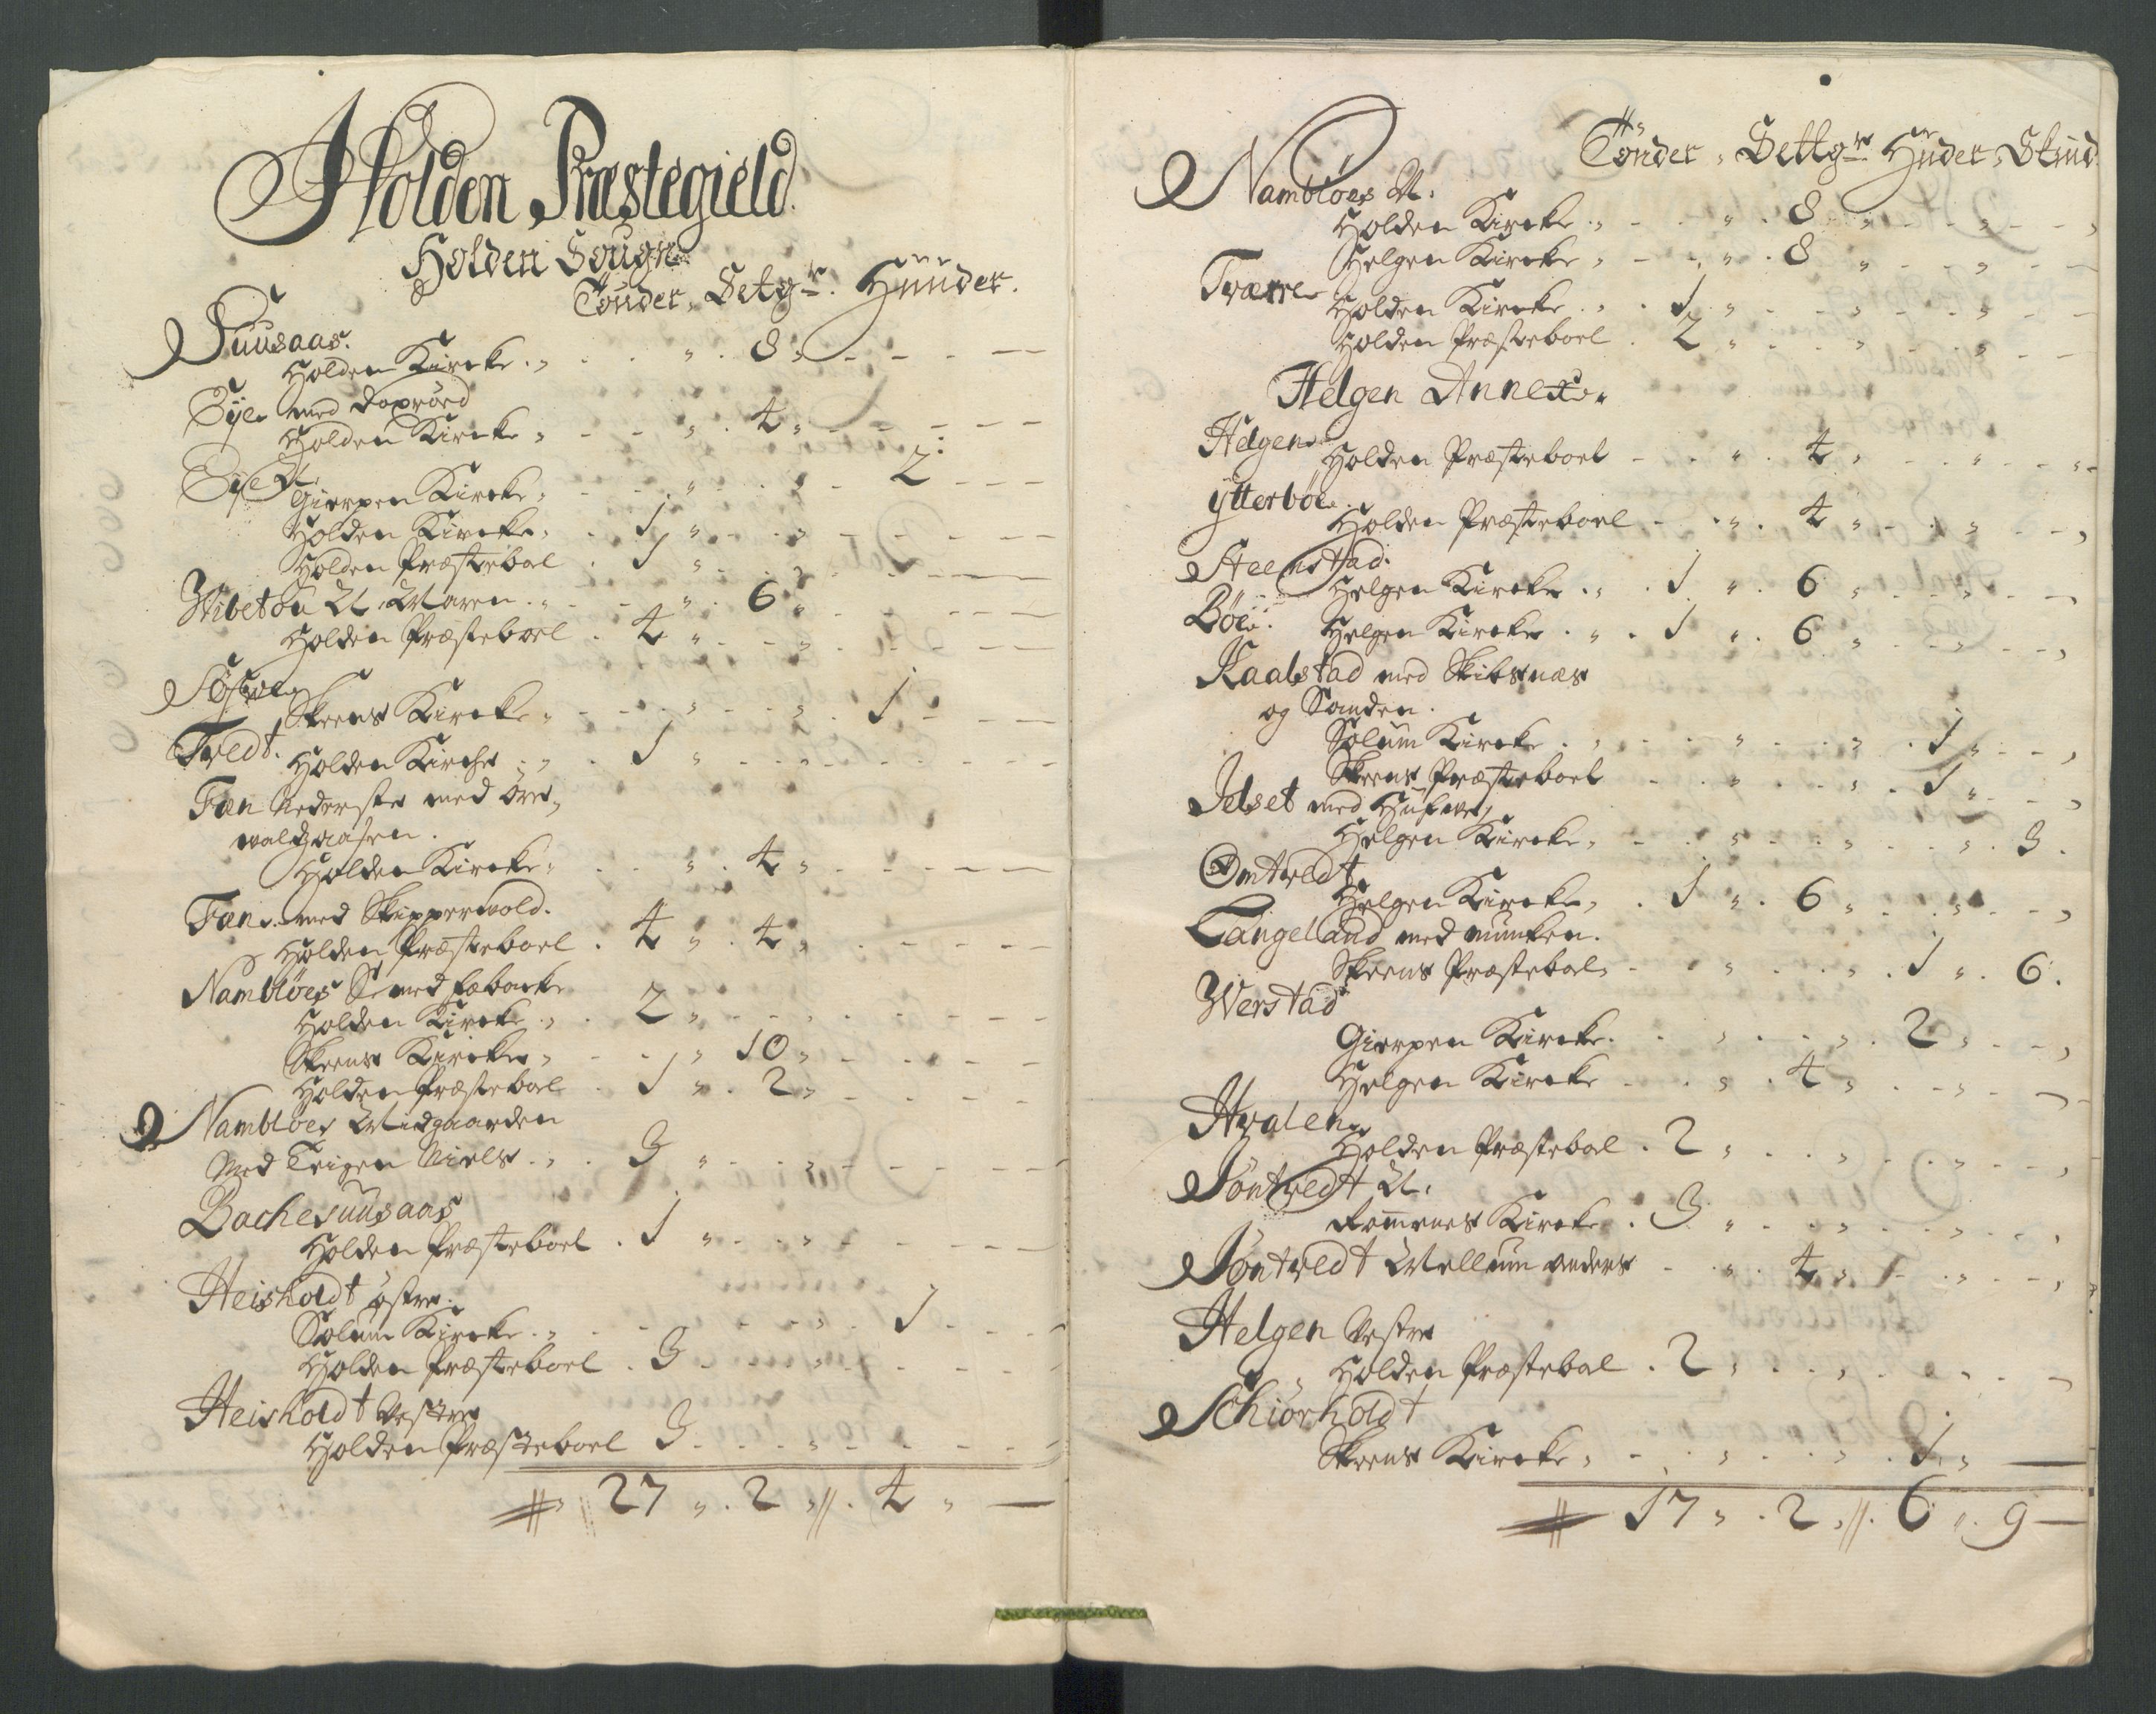 Holden Præstegield.
Holden Sougn
Tønder, Setgr. Hüüder.
Suusaas.
Holden Kircke . „ 8 „
Eye med Dopröed
Holden Kircke „ 4 „
Eye
Gierpen Kircke „ 2
Holden Kircke . 1 „
Holden Præstebol . 1 „
Wibetou U. Maren . „ 6 „
Holden Præsteboel . 4 „
Skeens Kircke „ 1
Tvedt. Holden Kirche . 1 „
Fæn Nederste med Øre,
waldgaasen.
Holden Kircke „ 4 „
Fæn med Skipperwold.
Holden Præsteboel . 4 „ 4 „
Nambløes S. med Febacke
Holden Kircke . 2 „
Skeens Kircke „ 10 „
Holden Præstebol . 1 „ 2 „
Nambløes Midgaarden
Med Teigen Niels . 3 „
Bachesuusaas
Holden Præsteboel . 1 „
Heisholdt østre.
Solum Kircke . „ 1
Holden Præsteboel . 3
Heisholdt Vestre
Holden Præsteboel 3
27 „ 2 „ 4 „ —
Tønder, Settgr Hüder, Skind
Nambløes N.
Holden Kircke „ 8 „
Helgen Kircke „ 8 „
Tværre
Holden Kircke . 1 „
Holden Præsteboel . 2 „
Helgen Annex.
Helgen
Holden Præsteboel „ 4 „
Ytterböe
Holden Præsteboel „ 4 „
Steenstad.
Helgen Kircke . 1 „ 6 „
Böe. Helgen Kircke . 1 „ 6 „
Kaalstad med Skibsnæs
og Sanden.
Solum Kircke . „ 1 „
Skeens Præsteboel „ 1 „
Jelset med
Helgen Kircke „ 3.
Omtvedt
Helgen Kircke, . 1 „ 6 „
Langeland med Munken.
Skeens Præstebol „ 1 „ 6.
Werstad
Gierpen Kircke . „ 2 „
Helgen Kircke „ 4 „
Hvalen
Holden Præstebol . 2 „
Söntvedt U.
Romnes Kircke . 3 „
Söntvedt Mellum Anders „ 4 „
Helgen Vestre
„ Holden Præstebol . 2 „
Schiörholdt
Skeens Kircke „ 1 „ —
17 „ 2 „ 6 „ 9 —